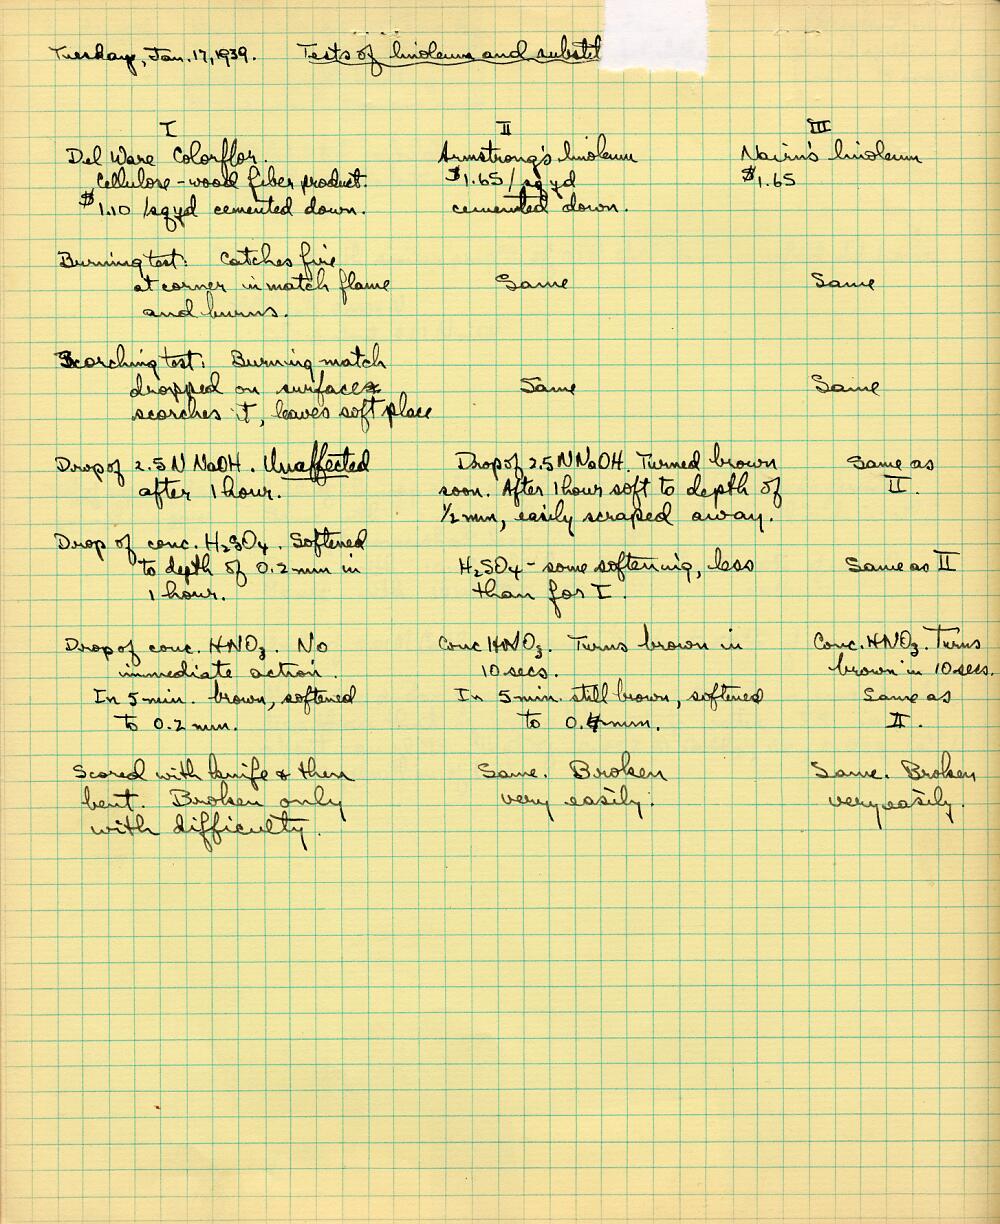 Tuesday, Jan. 17, 1939. Tests of linoleum and substit
I
Del Ware Colorflor.
Cellulose-wood fiber product.
$1.10 /sq yd cemented down.
II
Armstrong's linoleum
$1.65/sq yd
cemented down.
III
Nairn's linoleum
$1.65
Burning test: Catches fire
at corner in match flame
and burns.
Same
Same
Scorching test: Burning match
dropped on surface
scorches it, leaves soft place
Same
Same
Drop of 2.5 N NaOH. Unaffected
after 1 hour.
Drop of 2.5 N NaOH. Turned brown
soon. After 1 hour soft to depth of
1/2 mm, easily scraped away.
Same as
II.
Drop of conc. H2SO4. Softened
to depth of 0.2 mm in
1 hour.
H2SO4 - some softening, less
than for I.
Same as II
Drop of conc. HNO3. No
immediate action.
In 5 min. brown, softened
to 0.2 mm.
Conc HNO3. Turns brown in
10 secs.
In 5 min. still brown, softened
to 0.4 mm.
Conc. HNO3. Turns
brown in 10 secs.
Same as
II.
Scored with knife & then
bent. Broken only
with difficulty.
Same. Broken
very easily.
Same. Broken
very easily.